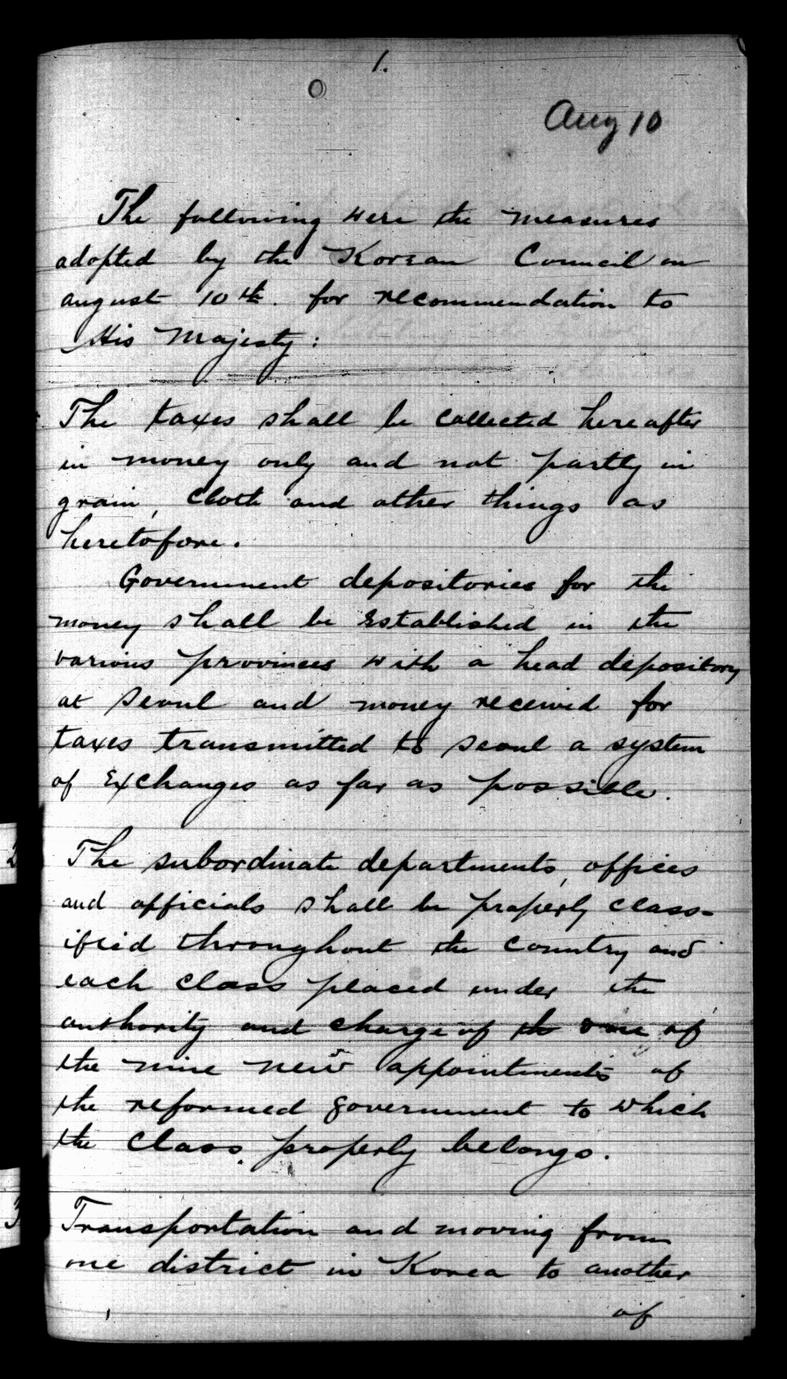 1.
Aug 10
The following were the measures
adopted by the Korean Council on
august 10th. for recommendation to
His Majesty:
The taxes shall be collected hereafter
in money only and not partly in
grain, cloth and other things as
heretofore.
Government depositories for the
money shall be Established in the
various provinces with a head depository
at Seoul and money received for
taxes transmitted to Seoul a system
of Exchanges as far as possible.
2
The subordinate departments, offices
and officials shall be properly class-
ified throughout the country and
each class placed under the
authority and charge of th one of
the nine new appointments of
the reformed government to which
the class properly belongs.
3
Transportation and moving from
one district in Korea to another
of